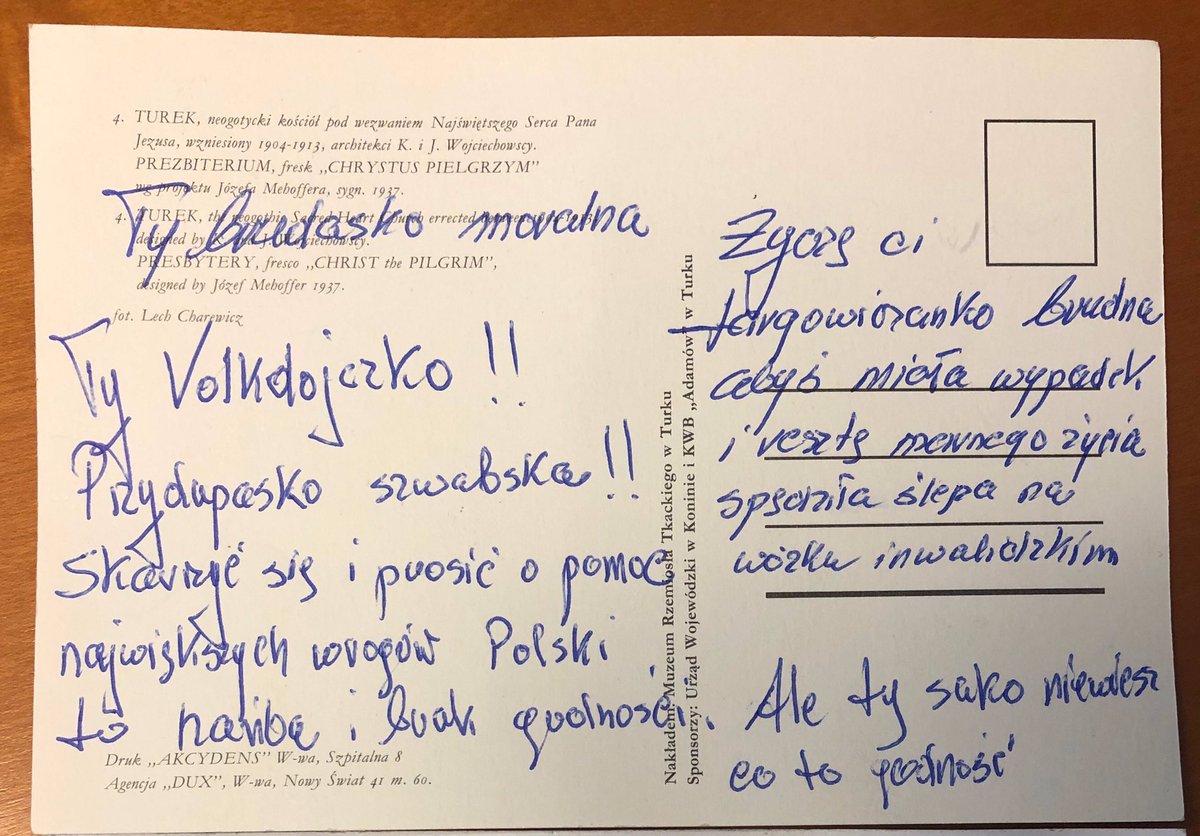 4. TUREK, neogotycki kościół pod wezwaniem Najświętszego Serca Pana
Jezusa, wzniesiony 1904-1913, architekci K. i J. Wojciechowscy.
PREZBITERIUM, fresk „CHRYSTUS PIELGRZYM"
wg projektu Józefa Mehoffera, sygn. 1937.
4. TUREK, the neogothic Sacred Heart Church errected between 1904-1913,
designed by K. and J. Wojciechowscy.
PRESBYTERY, fresco „CHRIST the PILGRIM",
designed by Józef Mehoffer 1937.
fot. Lech Charewicz
Ty brudasko moralna
Ty Volkdojczko !!
Przydupasko szwabska !!
Skarżyć się i prosić o pomoc
największych wrogów Polski
to hańba i brak godności.
Druk „AKCYDENS" W-wa, Szpitalna 8
Agencja „DUX", W-wa, Nowy Świat 41 m. 60.
Nakładem: Muzeum Rzemiosła Tkackiego w Turku
Sponsorzy: Urząd Wojewódzki w Koninie i KWB „Adamów" w Turku
Życzę ci
targowiczanko brudna
cobyś miała wypadek
i resztę marnego życia
spędziła ślepa na
wózku inwalidzkim
Ale ty sako niewiesz
co to godność